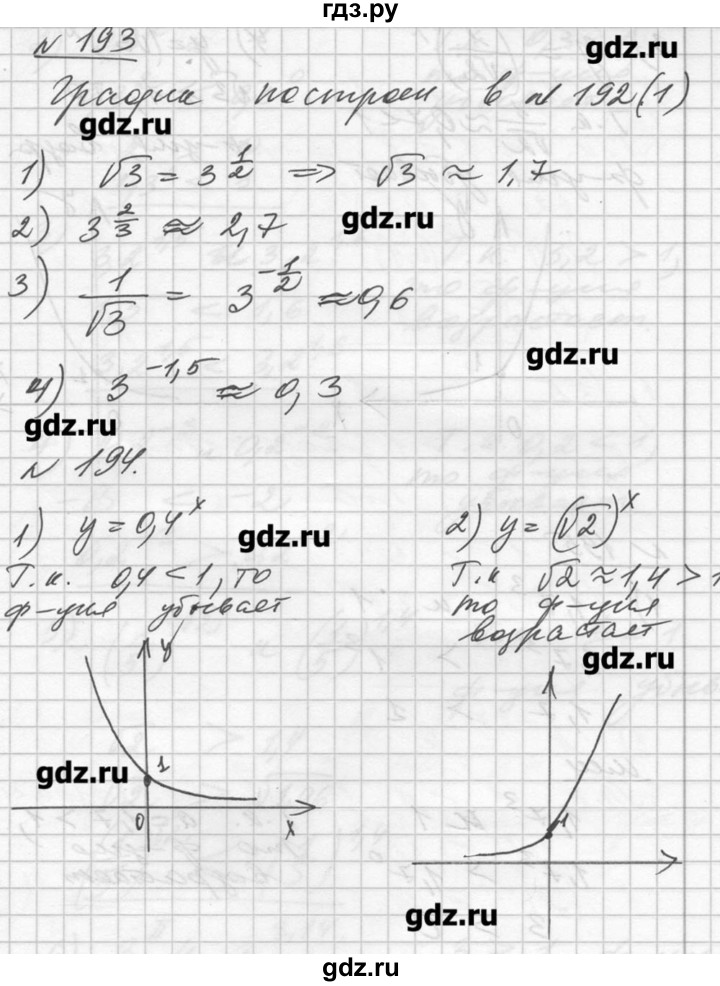 гдз.ру
№ 193
gdz.ru
График построен в № 192(1)
gdz.ru
1) √3 = 3^(1/2) => √3 ≈ 1,7
2) 3^(2/3) ≈ 2,7
gdz.ru
3) 1/√3 = 3^(-1/2) ≈ 0,6
gdz.ru
4) 3^(-1,5) ≈ 0,3
gdz.ru
№ 194.
1) y = 0,4^x
gdz.ru
Т.к. 0,4 < 1, то
ф-ция убывает
2) y = (√2)^x
Т.к √2 ≈ 1,4 > 1
то ф-ция
возрастает
gdz.ru
y
1
gdz.ru
0
x
1
gdz.ru
gdz.ru